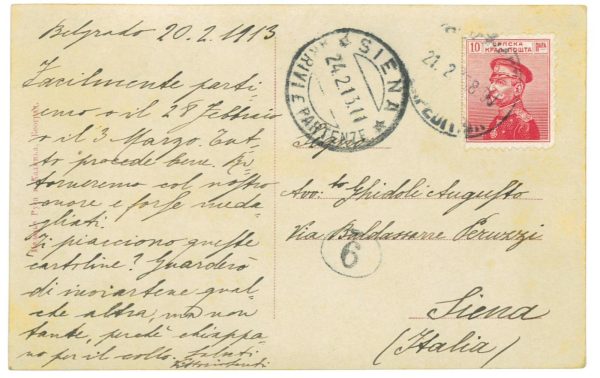 Belgrado 20.2.1913
Facilmente parti-
remo o il 28 Febbraio
o il 3 Marzo. Tut-
to procede bene. Ri-
torneremo col nostro
onore e forse meda-
gliati.
Ti piacciono queste
cartoline? Guarderò
di inviartene qual-
che altra, ma non
tante, perchè chiappa-
no per il collo. Saluti
SIENA
24.2.13.11
ARRIVI E PARTENZE
21.2
10
СРПСКА
КР. ПОШТА
ПАРА
Avv.to Ghidoli Augusto
Via Baldassarre Peruzzi
6
Siena
(Italia)